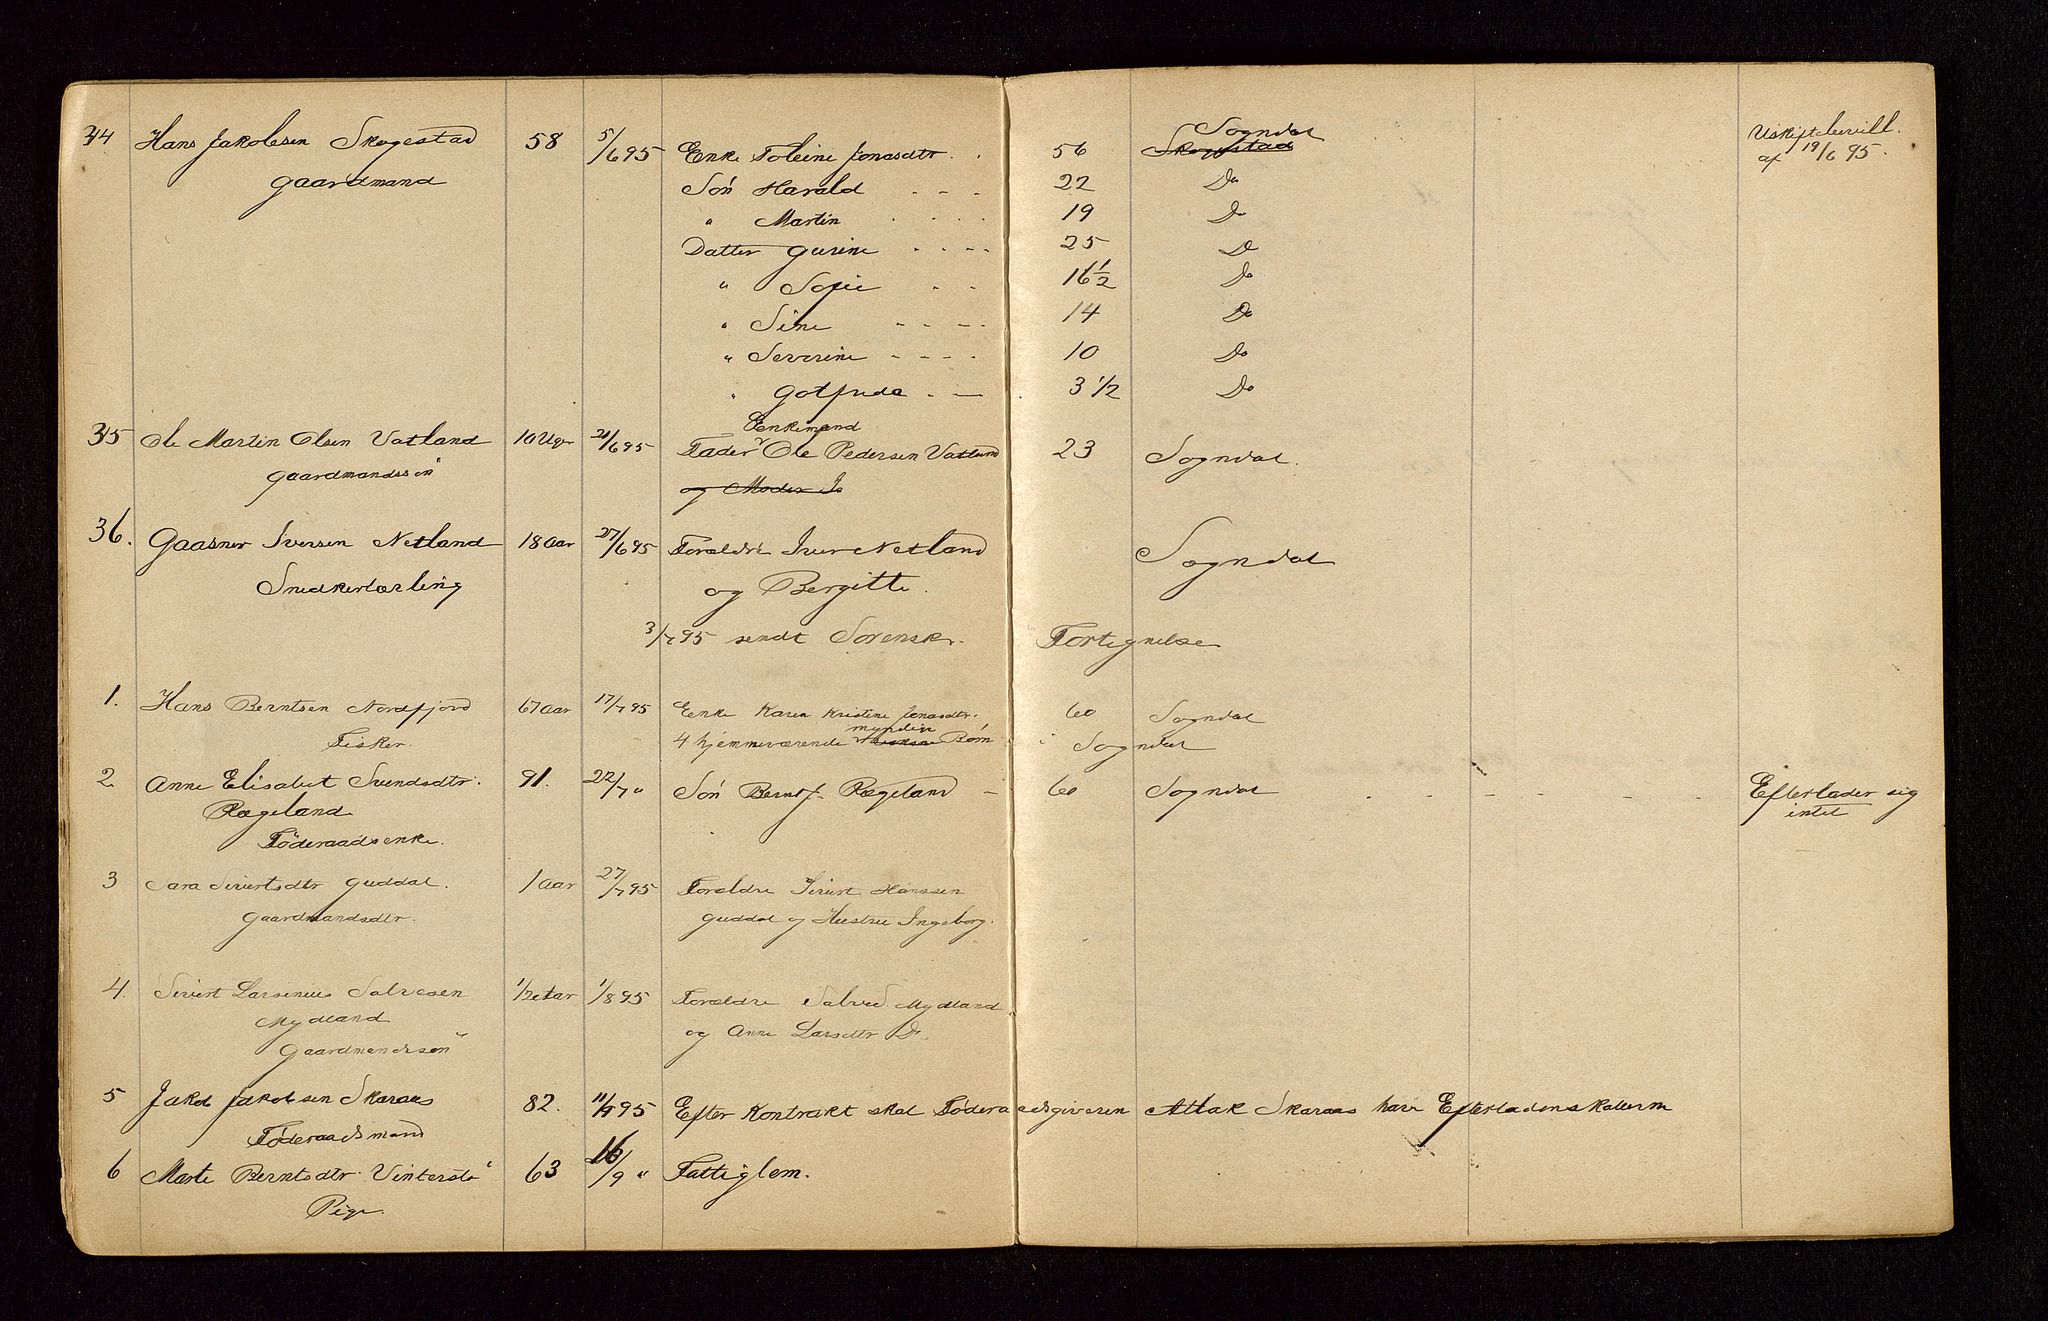 34 Hans Jakobsen Skogestad 58 5/6 95 Enke Toleine Jonasdtr. 56 Sogndal Skogestad Uskiftebevill.
gaardmand Søn Harald 22 Do af 19/6 95.
" Martin 19 Do
Datter Gurine 25 Do
" Sofie 16 1/2 Do
" Sine 14 Do
" Severine 10 Do
" Gotfrida 3 1/2 Do
Enkemand
35 Ole Martin Olsen Vatland 10 Uger 21/6 95 Fader Ole Pedersen Vatland 23 Sogndal.
gaardmandssøn og Moder
36. Gaasner Iversen Netland 18 Aar 27/6 95 Forældre Iver Netland Sogndal
Snedkerlærling og Bergitte.
3/7 95 sendt Sorenskr. Fortegnelse
1. Hans Berntsen Nordfjord 67 Aar 17/7 95 Enke Karen Kristine Jonasdtr. 60 Sogndal
Fisker. 4 hjemmeværende myndige Børn Sogndal
2 Anne Elisabet Svendsdtr. 91. 22/7 " Søn Bernt J. Rægeland 60 Sogndal Efterlader sig
Rægeland intet
Føderaadsenke.
3 Sara Sivertsdtr Guddal. 1 Aar 27/7 95 Forældre Sivert Hanssen
Gaardmandsdtr. Guddal og Hustru Ingeborg.
4. Sivert Larsenius Salvesen 1/2 Aar 1/8 95 Forældre Salve Mydland
Mydland og Anne Larsdtr Do.
Gaardmandssøn
5 Jakob Jakobsen Skaraas 82. 11/9 95 Efter Kontrakt skal Føderaadsgiveren Atlak Skaraas have Efterladenskaberne
Føderaadsmand
6 Marte Berntsdtr Vinterstø 63 16/9 " Fattiglem.
Pige.